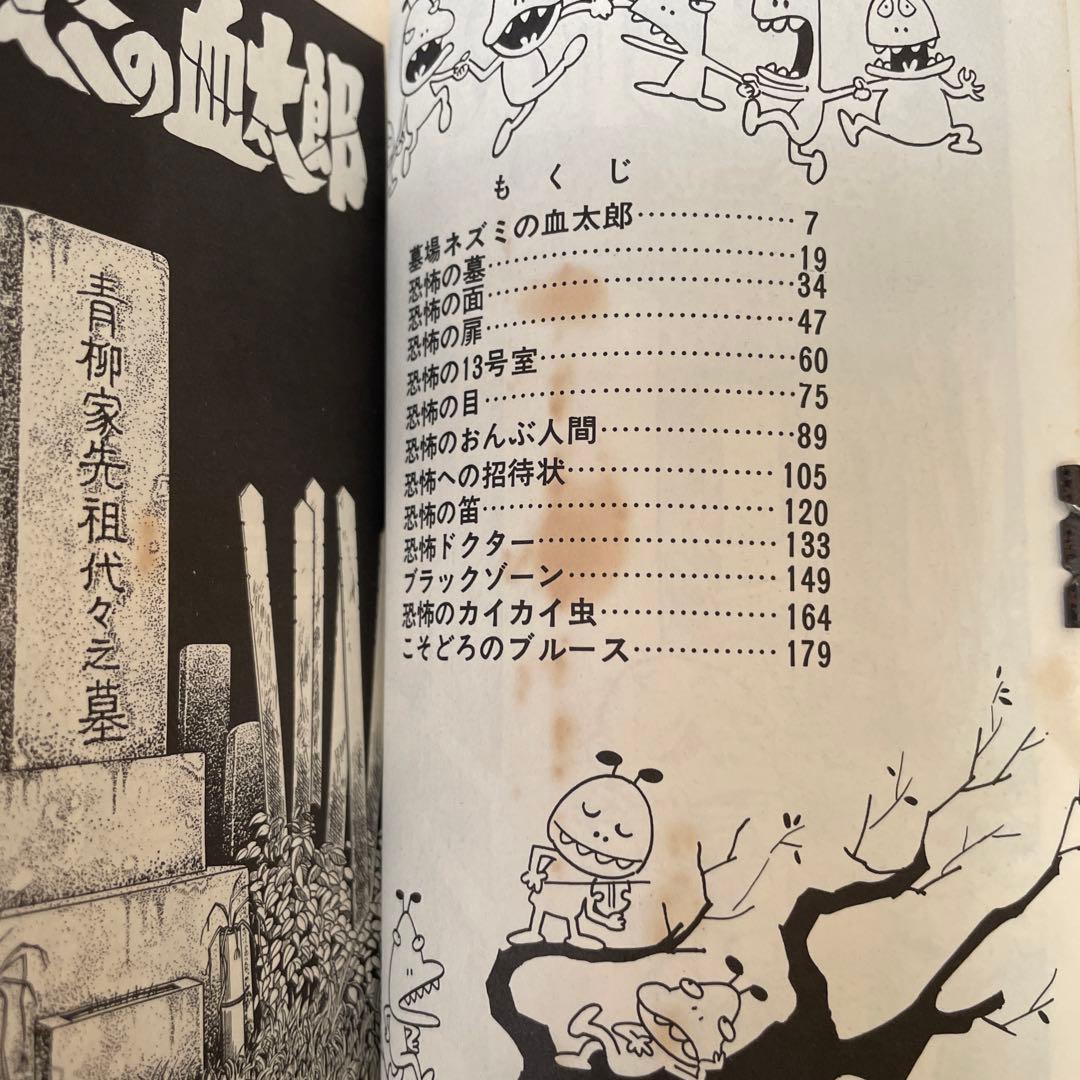 ミの血太郎
青柳家先祖代々之墓
もくじ
墓場ネズミの血太郎 7
恐怖の墓 19
恐怖の面 34
恐怖の扉 47
恐怖の13号室 60
恐怖の目 75
恐怖のおんぶ人間 89
恐怖への招待状 105
恐怖の笛 120
恐怖ドクター 133
ブラックゾーン 149
恐怖のカイカイ虫 164
こそどろのブルース 179